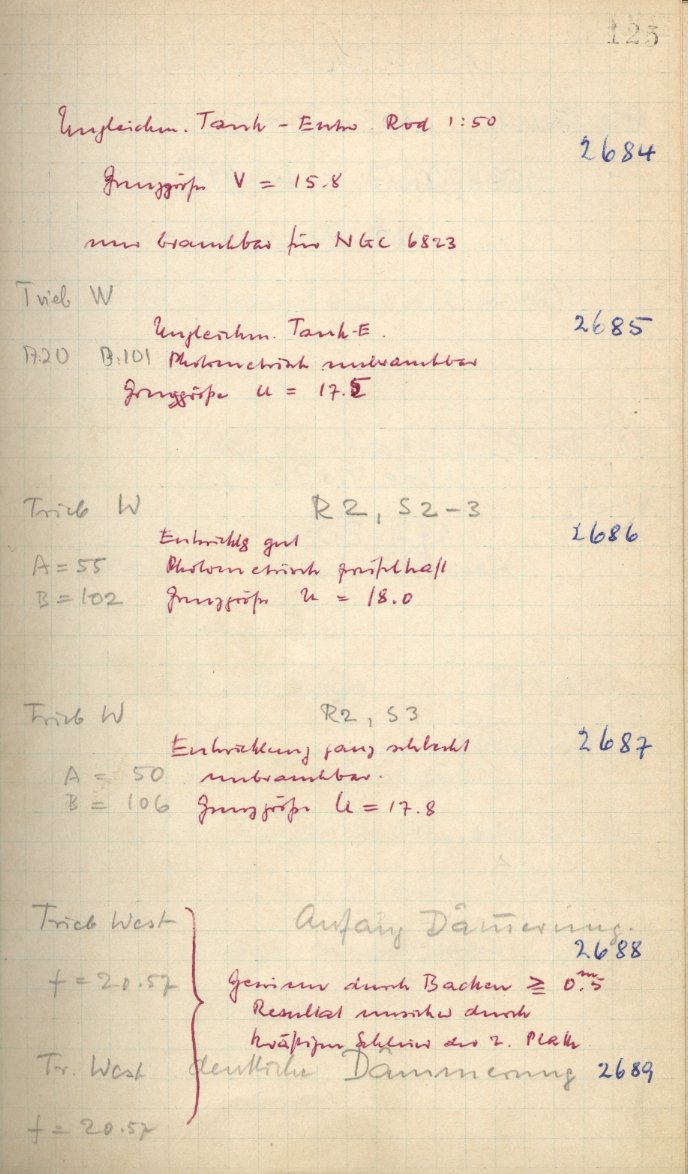 125
Ungleichm. Tank - Entw. Rod 1:50
2684
Grenzgröße V = 15.8
nur brauchbar für NGC 6823
Trieb W
Ungleichm. Tank-E.
2685
A:20 B:101 Photometrisch unbrauchbar
Grenzgröße U = 17.5
Trieb W R2, S2-3
Entwicklg gut
2686
A = 55 Photometrisch zweifelhaft
B = 102 Grenzgröße U = 18.0
Trieb W R2, S3
Entwicklung ganz schlecht
2687
A = 50 unbrauchbar.
B = 106 Grenzgröße U = 17.8
Trieb West Anfang Dämmerung.
2688
f = 20.57 Gewinn durch Backen ≧ 0.ᵐ5
Resultat unsicher durch
kräftigen Schleier der 2. Platte
Tr. West deutliche Dämmerung 2689
f = 20.57